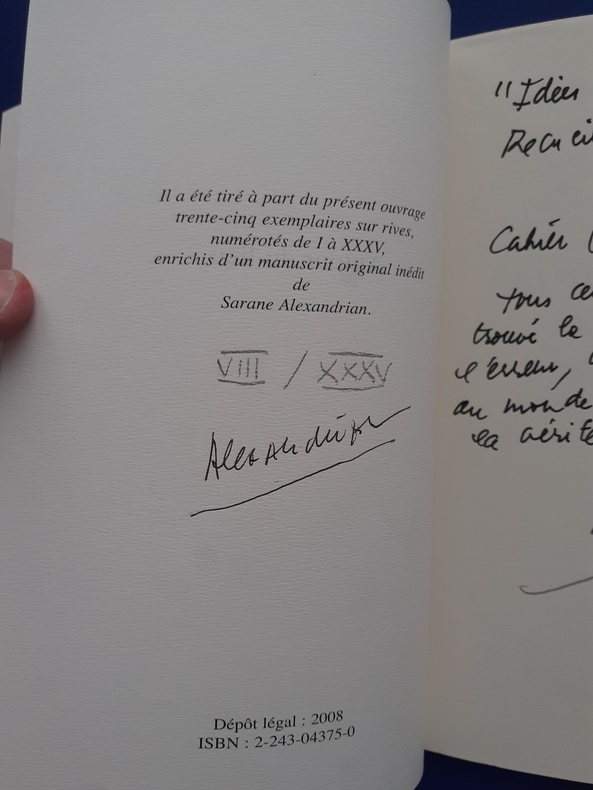 Il a été tiré à part du présent ouvrage
trente-cinq exemplaires sur rives,
numérotés de I à XXXV,
enrichis d'un manuscrit original inédit
de
Sarane Alexandrian.
VIII / XXXV
Alexandrian
Dépôt légal : 2008
ISBN : 2-243-04375-0
"Idées
Recu
Cahier
tous
trouvé le
l'erreur,
au monde
la vérité